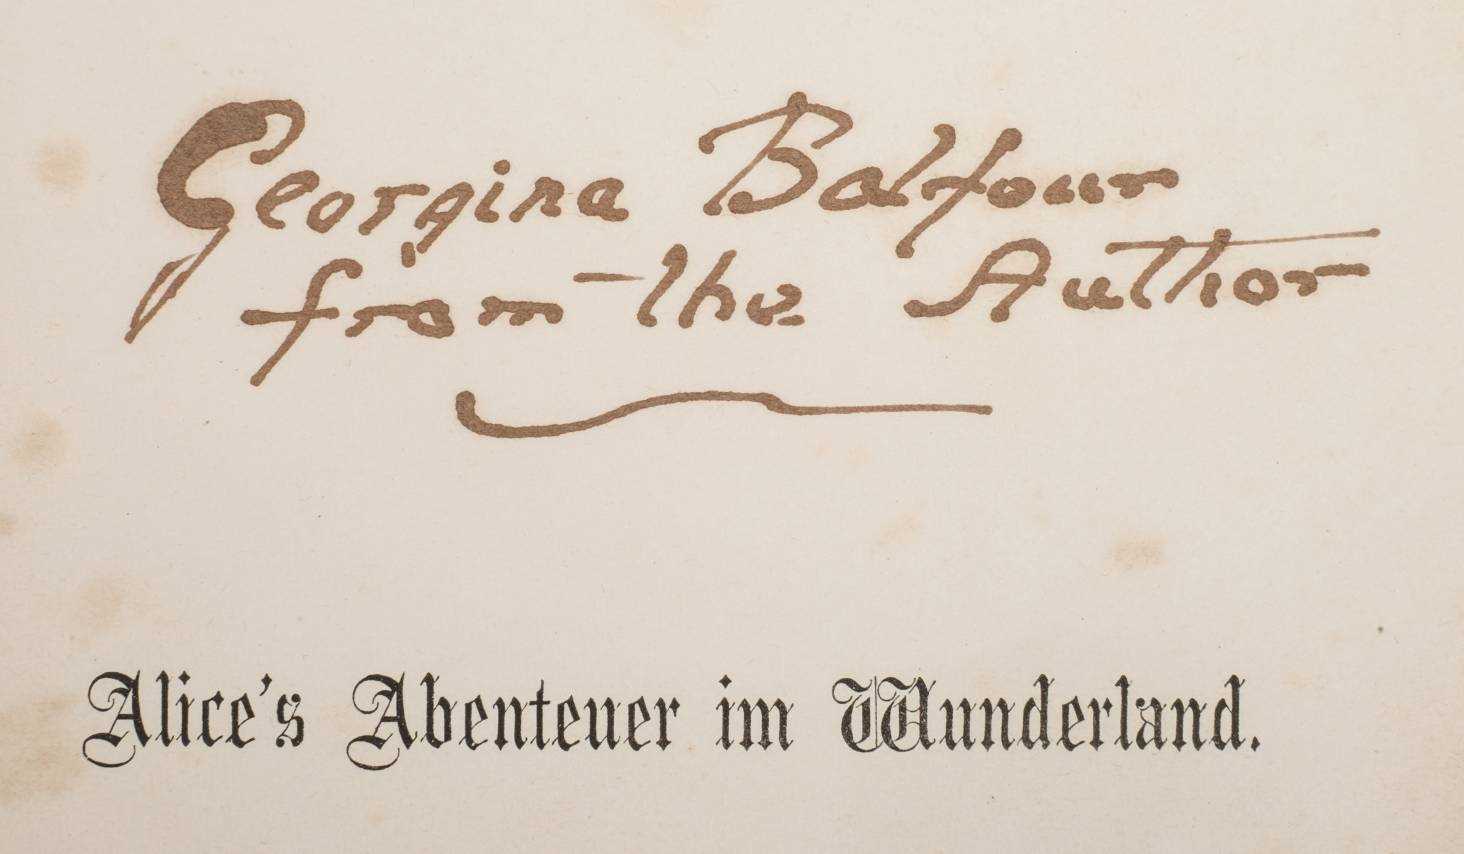 Georgina Balfour
from the Author
Alice's Abenteuer im Wunderland.